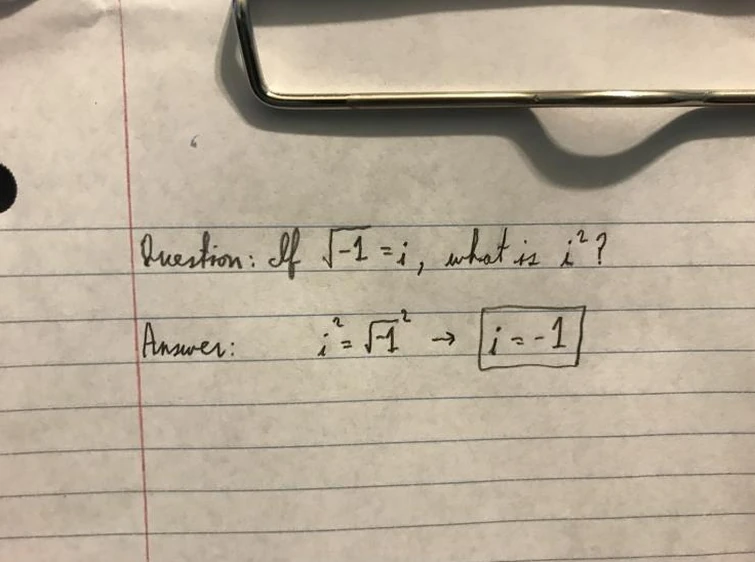 Question: If √-1 = i, what is i²?
Answer: i² = √-1² → i = -1